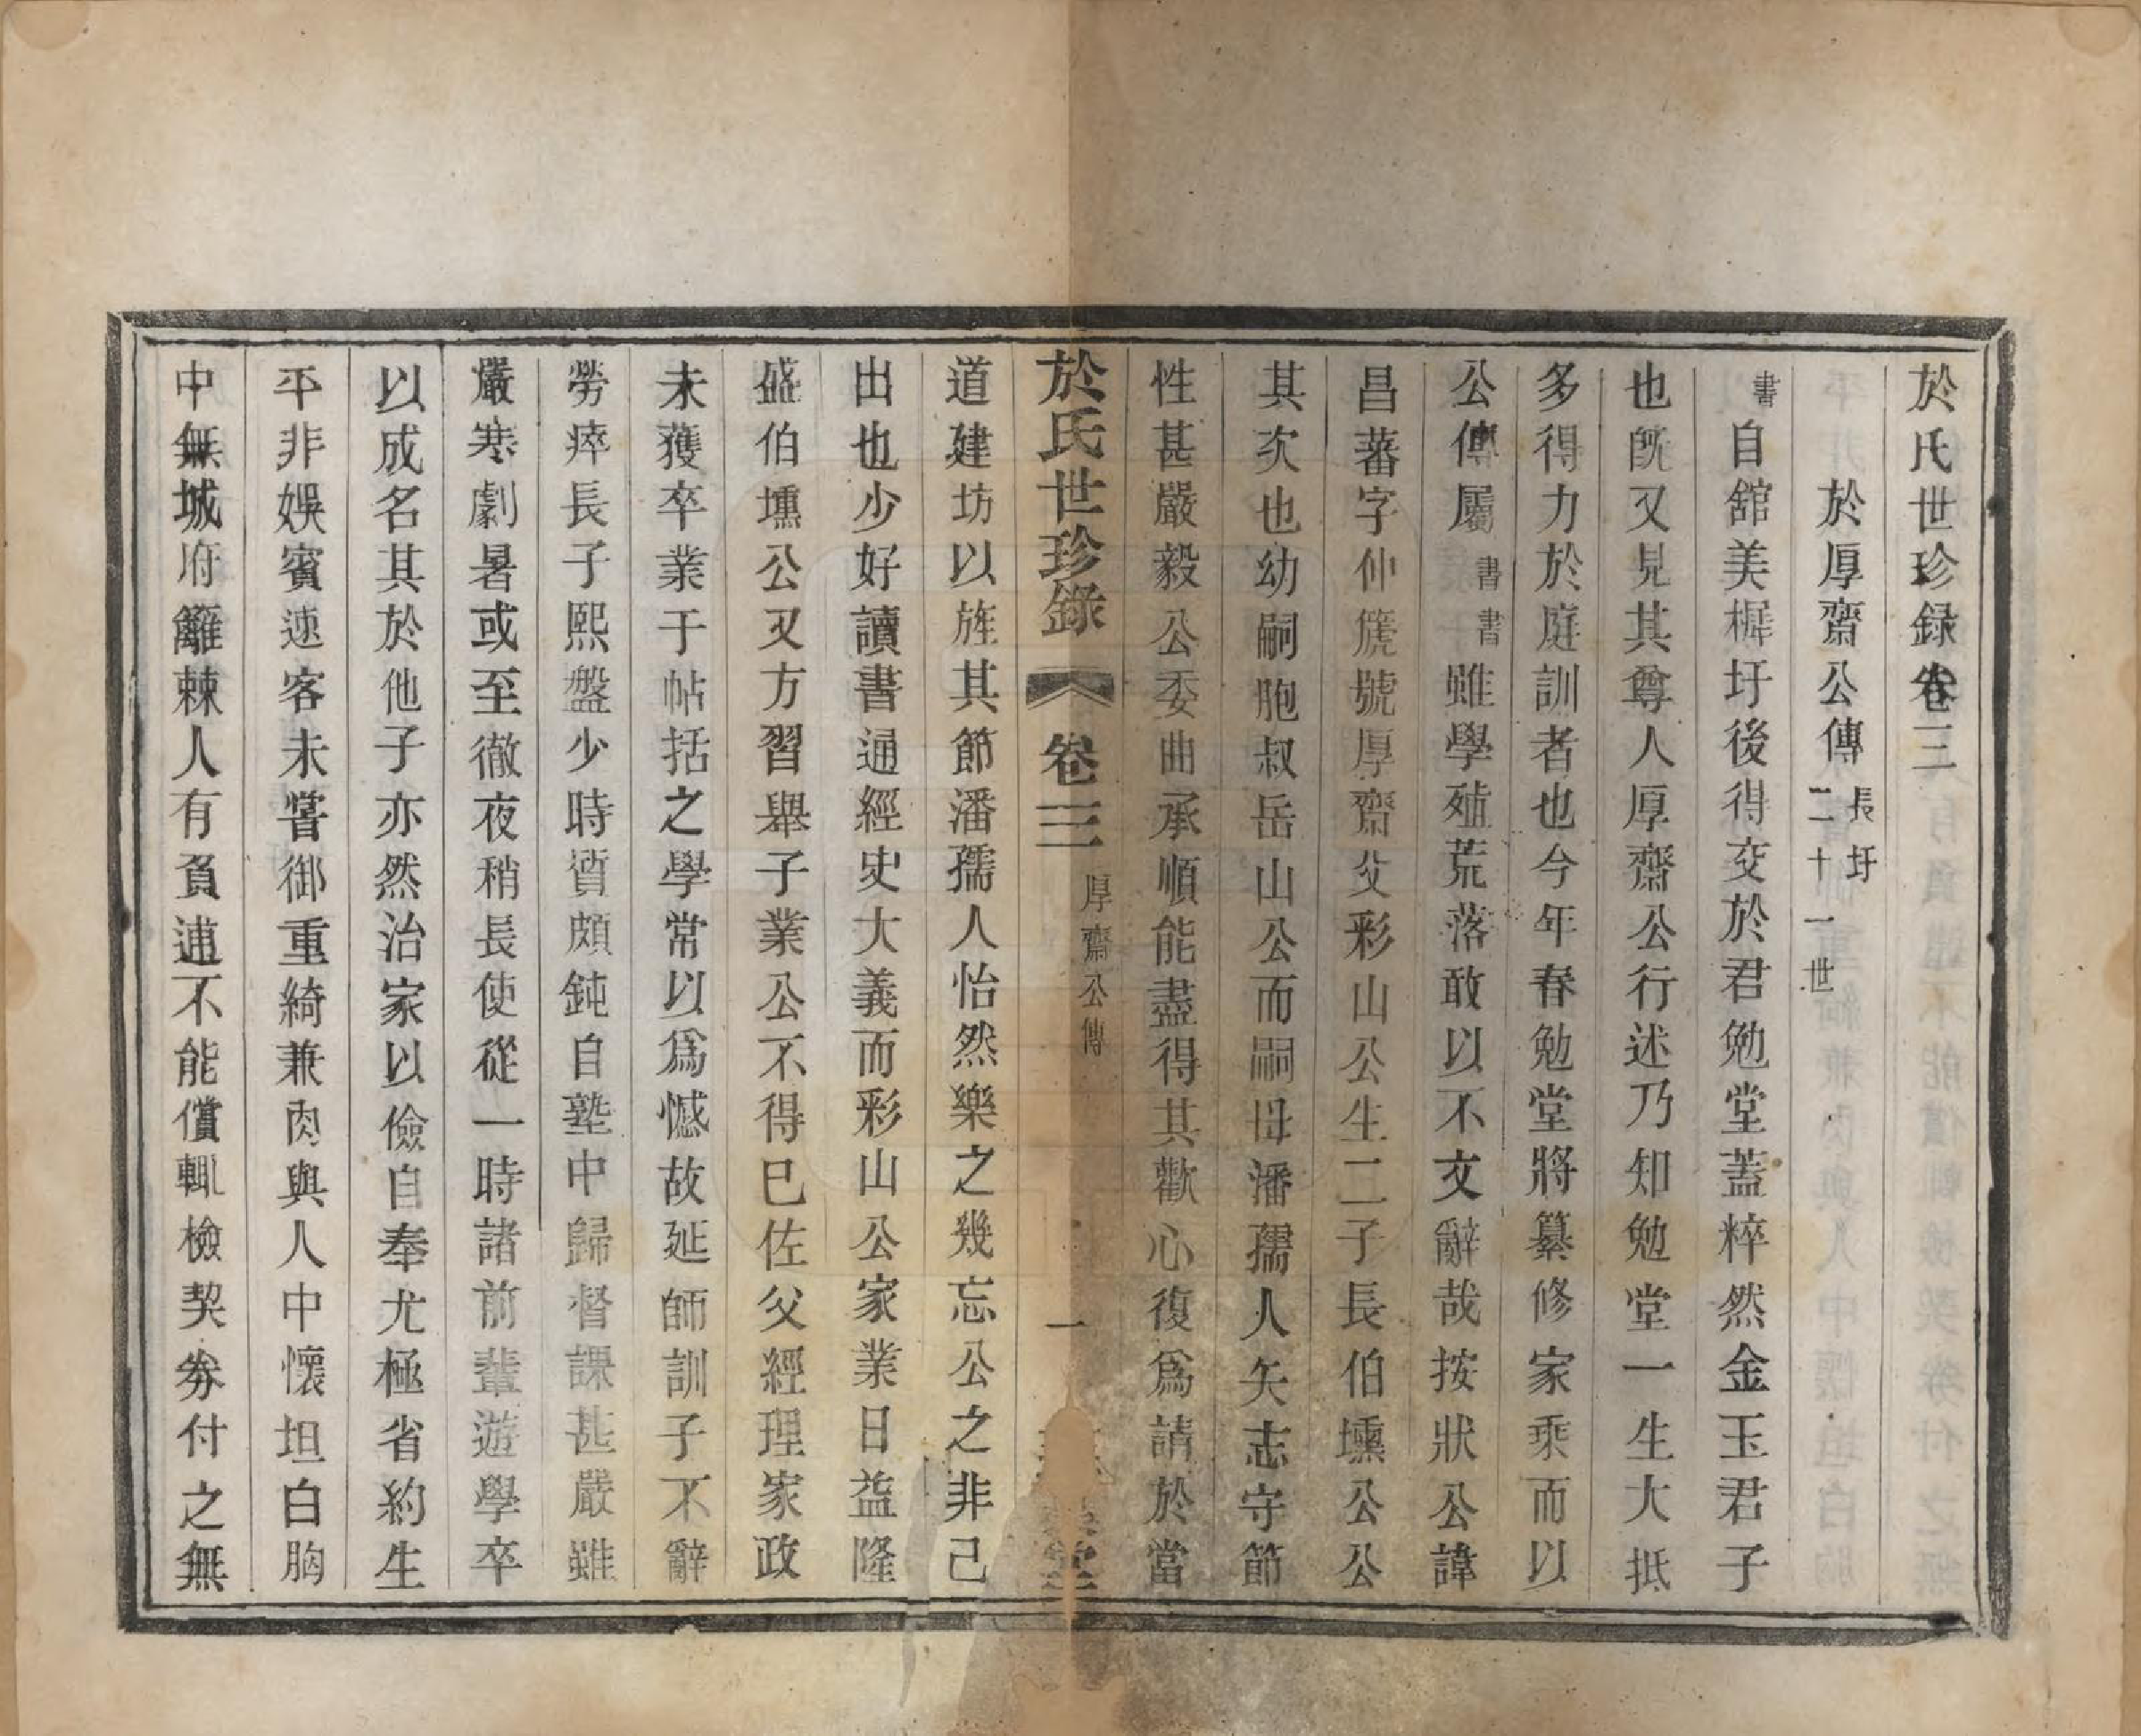 於氏世珍録卷三
於厚齋公傳 長圩二十一世
書自舘美樨圩後得交於君勉堂蓋粹然金玉君子
也旣又見其尊人厚齋公行述乃知勉堂一生大抵
多得力於庭訓者也今年春勉堂將纂修家乘而以
公傳屬書書雖學殖荒落敢以不文辭哉按狀公諱
昌蕃字仲箎號厚齋父彩山公生二子長伯壎公公
其次也幼嗣胞叔岳山公而嗣母潘孺人矢志守節
性甚嚴毅公委曲承順能盡得其歡心復爲請於當
於氏世珍錄 卷三 厚齋公傳 一 堂
道建坊以旌其節潘孺人怡然樂之幾忘公之非己
出也少好讀書通經史大義而彩山公家業日益隆
盛伯壎公又方習舉子業公不得已佐父經理家政
未獲卒業于帖括之學常以爲憾故延師訓子不辭
勞瘁長子熙盤少時質頗鈍自塾中歸督課甚嚴雖
嚴寒劇暑或至徹夜稍長使從一時諸前輩遊學卒
以成名其於他子亦然治家以儉自奉尤極省約生
平非娛賓速客未嘗御重綺兼肉與人中懷坦白胸
中無城府籬棘人有負逋不能償輒檢契券付之無